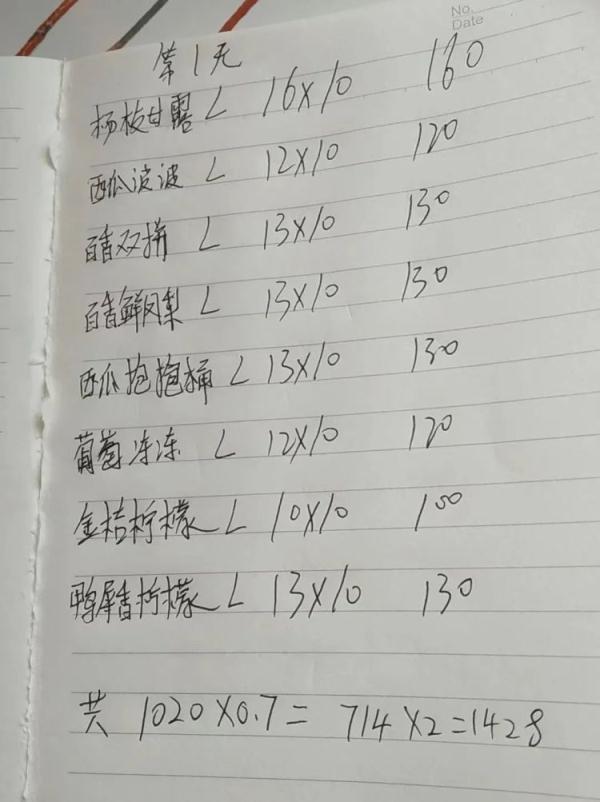 No.
Date
第1天
杨枝甘露 L 16×10 160
西瓜波波 L 12×10 120
百香双拼 L 13×10 130
百香鲜凤梨 L 13×10 130
西瓜抱抱桶 L 13×10 130
葡萄冻冻 L 12×10 120
金桔柠檬 L 10×10 100
鸭屎香柠檬 L 13×10 130
共 1020×0.7= 714×2=1428